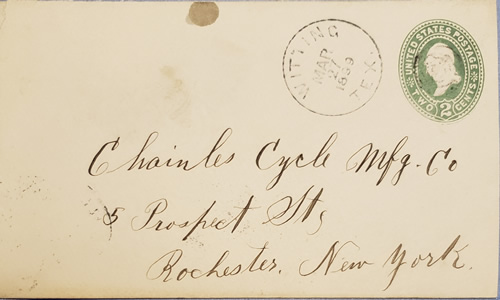 WITTING
MAR
27
1899
TEX.
UNITED STATES POSTAGE
TWO 2 CENTS
Chainles Cycle Mfg. Co
5 Prospect St,
Rochester. New York.